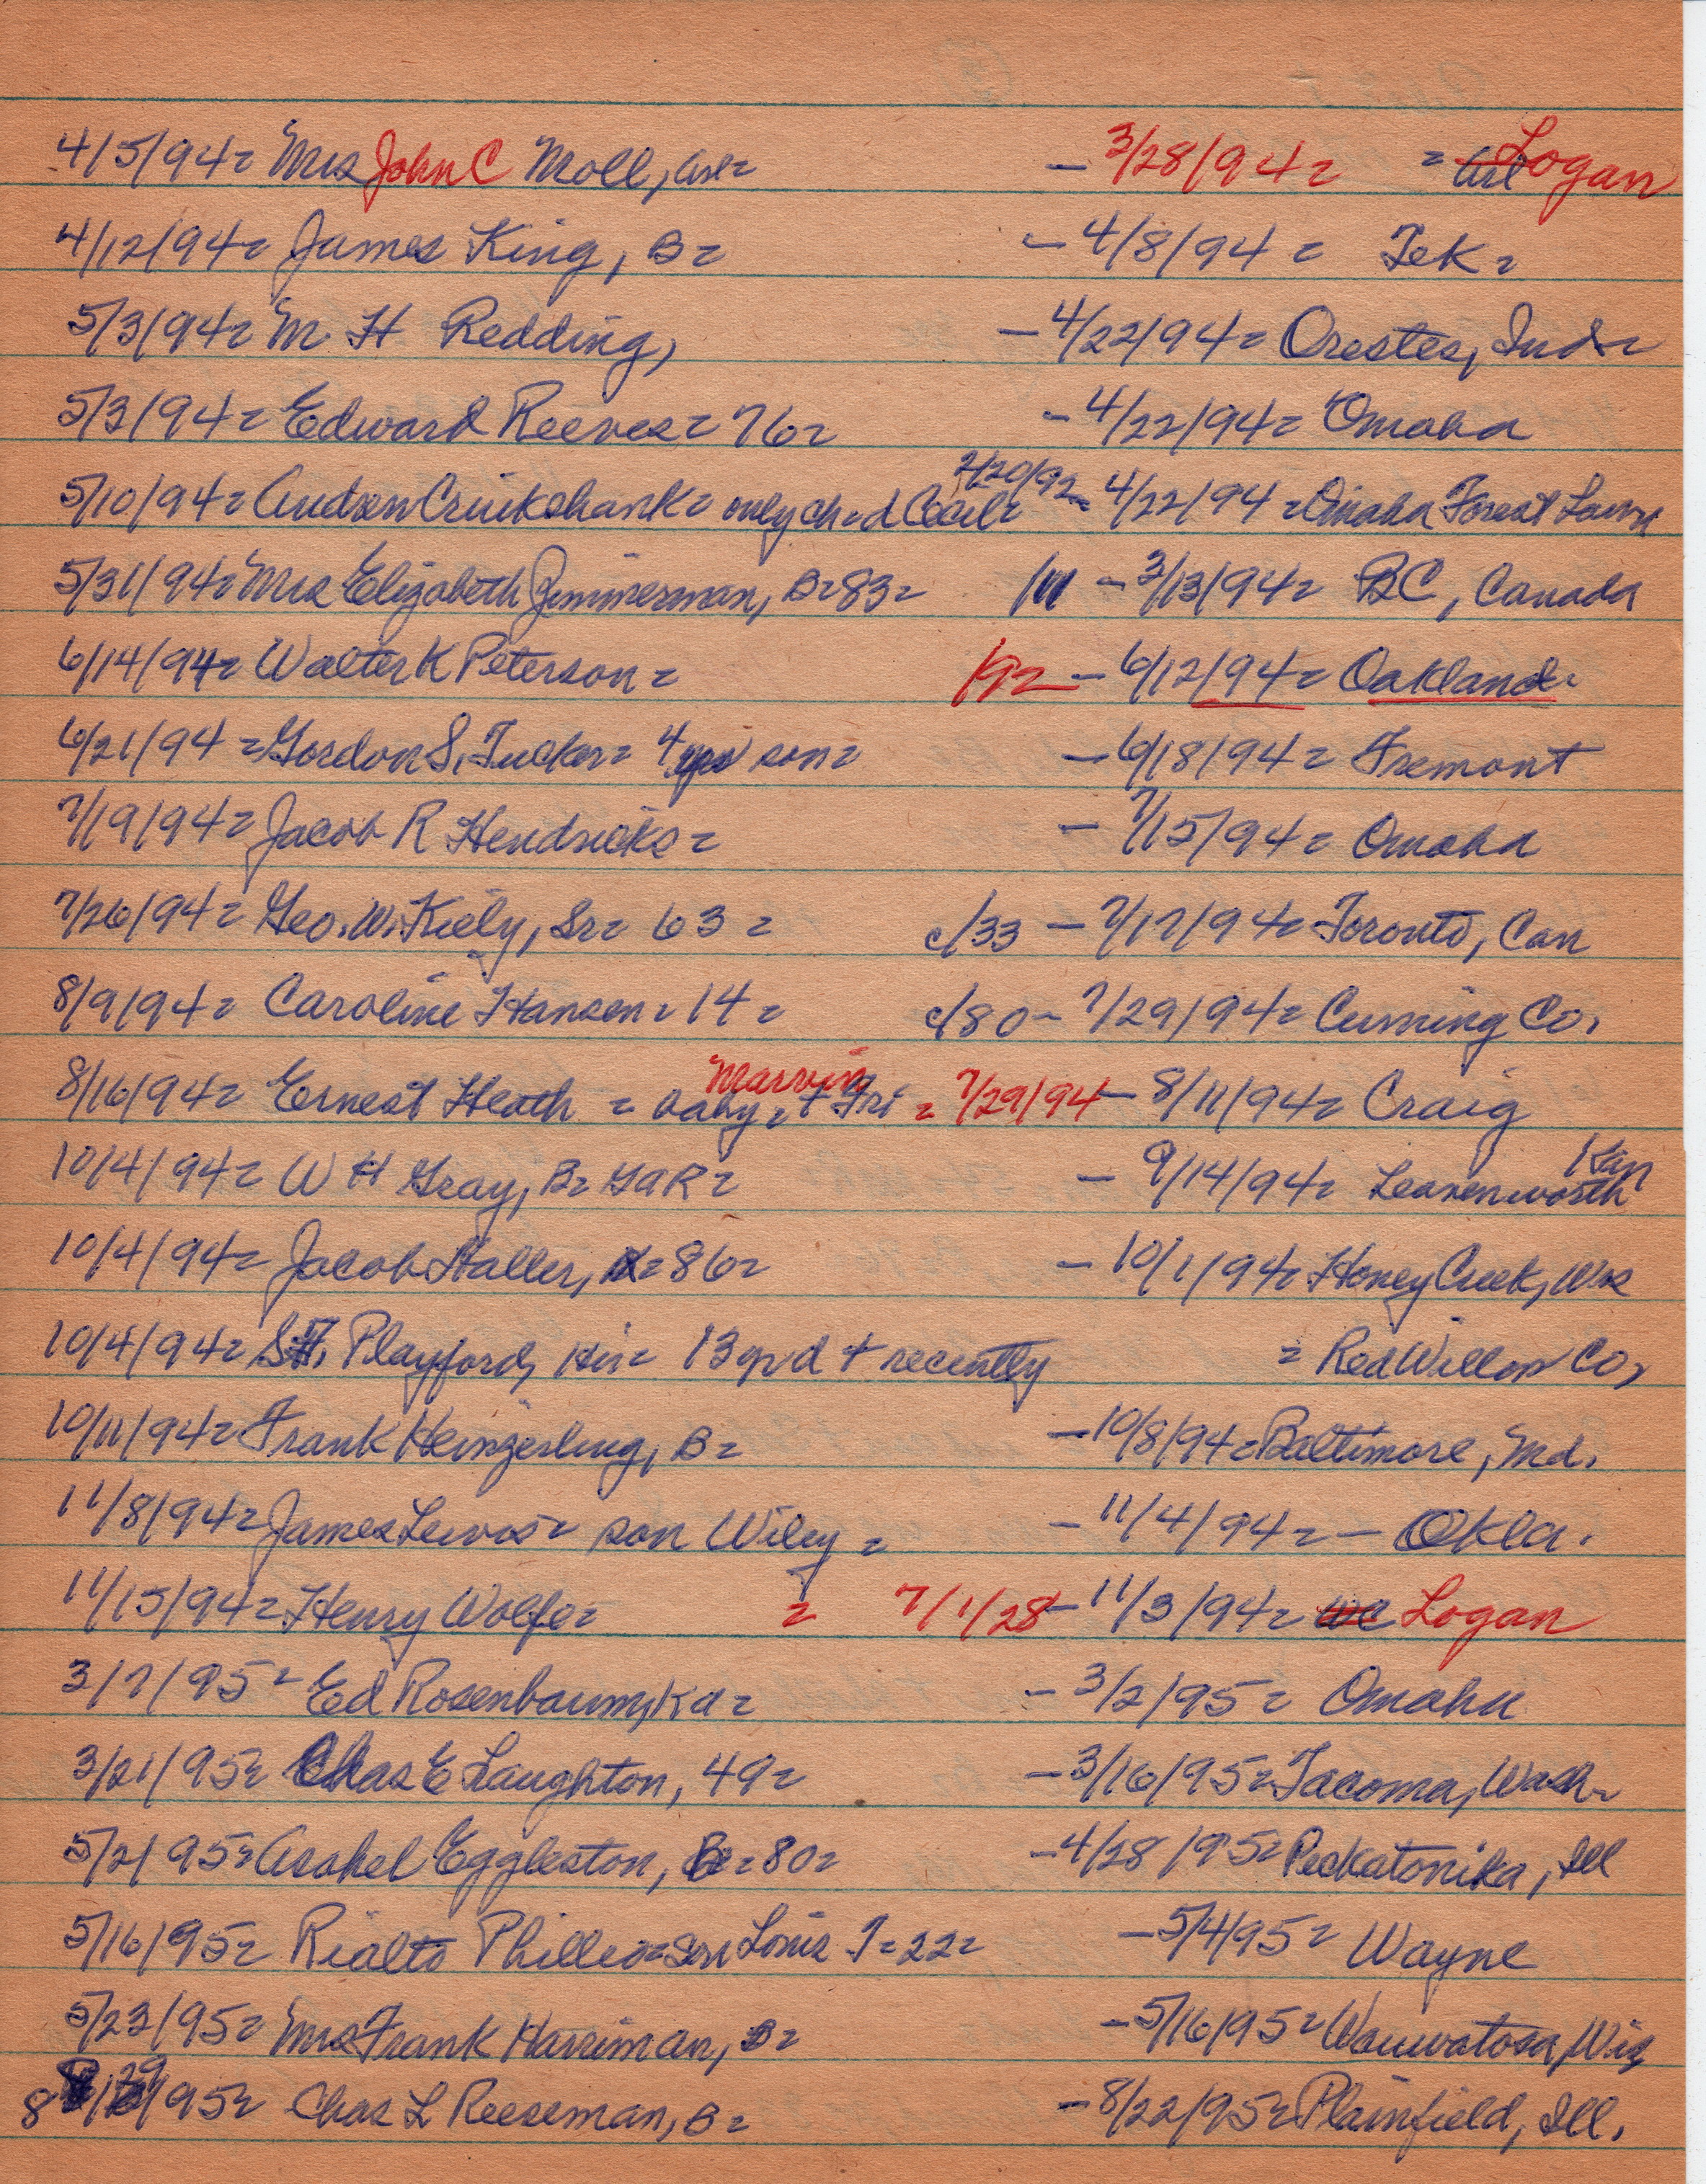 4/5/94= Mrs John C Moll, Arl= - 3/28/94= = Arl Logan
4/12/94= James King, B= - 4/8/94= Tek=
5/3/94= M H Redding, - 4/22/94= Orestes, Ind=
5/3/94= Edward Reeves= 76= - 4/22/94= Omaha
5/10/94= Audson Cruikshank= only ch=d Cecil= 2/20/92= 4/22/94= Omaha Forest Lawn
5/31/94= Mrs Elizabeth Zimmerman, B=83= /11 - 3/13/94= BC, Canada
6/14/94= Walter K Peterson= /92 - 6/12/94= Oakland=
6/21/94= Gordon S. Tucker= 4 yr son= - 6/18/94= Fremont
7/19/94= Jacob R Hendricks= - 7/15/94= Omaha
7/26/94= Geo. W. Kiely, Sr= 63= c/33 - 7/17/94= Toronto, Can
8/9/94= Caroline Hansen= 14= c/80 - 7/29/94= Cuming Co.
8/16/94= Ernest Heath = baby= Marvin + Fri = 7/29/94 - 8/11/94= Craig
10/4/94= W H Gray, B= GAR= - 9/14/94= Leavenworth Kan
10/4/94= Jacob Haller, =86= - 10/1/94= Honey Creek, Wis
10/4/94= Playford, 13 yr d + recently = Red Willow Co,
10/11/94= Frank Heinzerling, B= - 10/8/94= Baltimore, Md.
11/8/94= James Lewis= son Wiley= - 11/4/94= - Okla.
11/15/94= Henry Wolfe= = 7/1/28 - 11/3/94= we Logan
3/7/95= Ed Rosenbaum, Ka= - 3/2/95= Omaha
3/21/95= Chas E Laughton, 49= - 3/16/95= Tacoma, Wash=
5/2/95= Asahel Eggleston, B=80= - 4/28/95= Peckatonika, Ill
5/16/95= Rialto Phillio= son Louis T=22= - 5/4/95= Wayne
5/23/95= Mrs Frank Harriman, B= - 5/16/95= Wauwatosa, Wis
8/29/95= Chas L Reeseman, B= - 8/22/95= Plainfield, Ill.